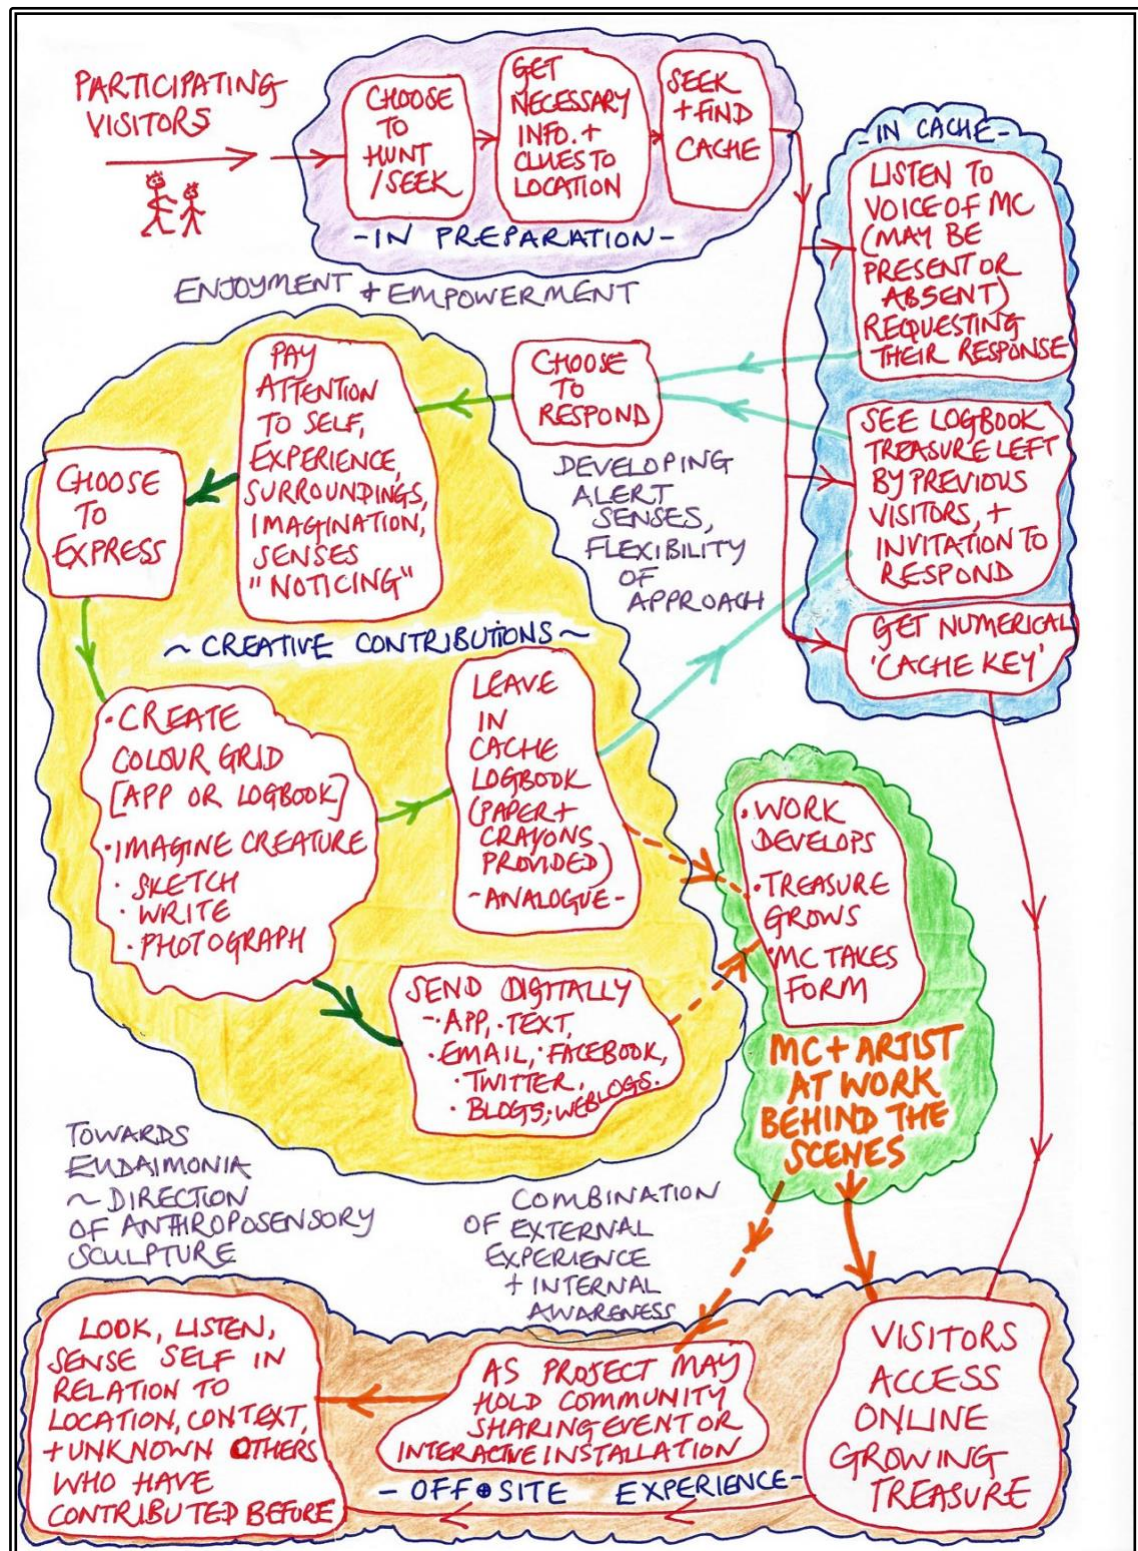 PARTICIPATING
VISITORS
CHOOSE
TO
HUNT
/SEEK
GET
NECESSARY
INFO. +
CLUES TO
LOCATION
SEEK
+ FIND
CACHE
- IN PREPARATION -
- IN CACHE -
LISTEN TO
VOICE OF MC
(MAY BE
PRESENT OR
ABSENT)
REQUESTING
THEIR RESPONSE
SEE LOGBOOK
TREASURE LEFT
BY PREVIOUS
VISITORS, +
INVITATION TO
RESPOND
GET NUMERICAL
'CACHE KEY'
ENJOYMENT + EMPOWERMENT
CHOOSE
TO
RESPOND
DEVELOPING
ALERT
SENSES,
FLEXIBILITY
OF
APPROACH
PAY
ATTENTION
TO SELF,
EXPERIENCE,
SURROUNDINGS,
IMAGINATION,
SENSES
"NOTICING"
CHOOSE
TO
EXPRESS
~ CREATIVE CONTRIBUTIONS ~
• CREATE
COLOUR GRID
[APP OR LOGBOOK]
• IMAGINE CREATURE
• SKETCH
• WRITE
• PHOTOGRAPH
LEAVE
IN
CACHE
LOGBOOK
(PAPER +
CRAYONS
PROVIDED)
- ANALOGUE -
SEND DIGITALLY
- • APP, • TEXT,
• EMAIL, • FACEBOOK,
• TWITTER,
• BLOGS, WEBLOGS.
• WORK
DEVELOPS
• TREASURE
GROWS
• MC TAKES
FORM
MC + ARTIST
AT WORK
BEHIND THE
SCENES
TOWARDS
EUDAIMONIA
~ DIRECTION
OF ANTHROPOSENSORY
SCULPTURE
COMBINATION
OF EXTERNAL
EXPERIENCE
+ INTERNAL
AWARENESS
LOOK, LISTEN,
SENSE SELF IN
RELATION TO
LOCATION, CONTEXT,
+ UNKNOWN OTHERS
WHO HAVE
CONTRIBUTED BEFORE
AS PROJECT MAY
HOLD COMMUNITY
SHARING EVENT OR
INTERACTIVE INSTALLATION
VISITORS
ACCESS
ONLINE
GROWING
TREASURE
- OFF • SITE EXPERIENCE -